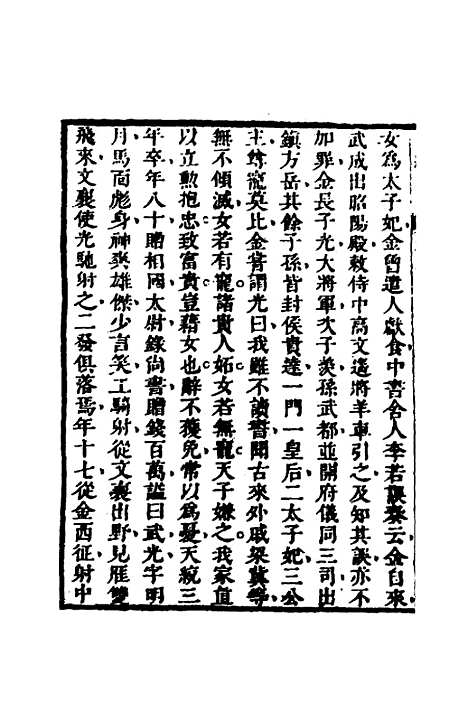 女爲太子妃金曾遣人獻食中書舍人李若誤奏云金自來
武成出昭陽殿敕侍中高文遙將羊車引之及知其誤亦不
加罪金長子光大將軍次子羨孫武都並開府儀同三司出
鎮方岳其餘子孫皆封侯貴達一門一皇后二太子妃三公
主尊寵莫比金嘗謂光曰我雖不讀書聞古來外戚梁冀等
無不傾滅女若有寵諸貴人妬女若無寵天子嫌之我家直
以立勳抱忠致富貴豈藉女也辭不獲免常以爲憂天統三
年卒年八十贈相國太尉錄尚書贈錢百萬諡曰武光字明
月馬面彪身神爽雄傑少言笑工騎射從文襄出野見雁雙
飛來文襄使光馳射之二發俱落焉年十七從金西征射中